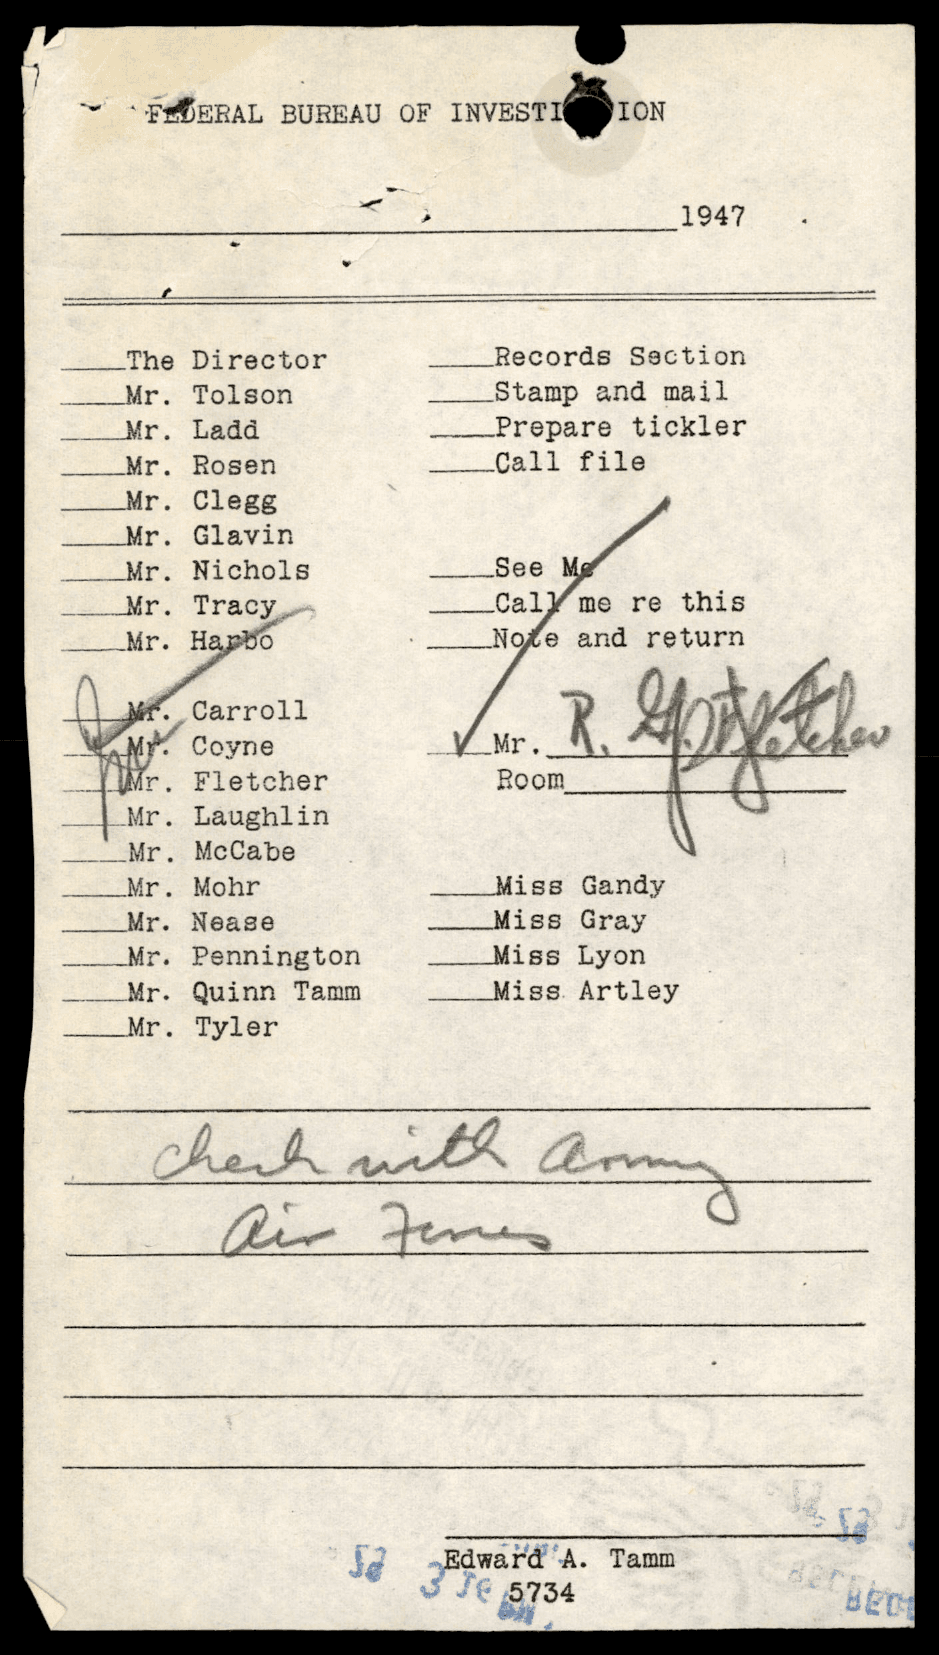 FEDERAL BUREAU OF INVESTI ION
1947
The Director
Mr. Tolson
Mr. Ladd
Mr. Rosen
Mr. Clegg
Mr. Glavin
Mr. Nichols
Mr. Tracy
Mr. Harbo
Mr. Carroll
Mr. Coyne
Mr. Fletcher
Mr. Laughlin
Mr. McCabe
Mr. Mohr
Mr. Nease
Mr. Pennington
Mr. Quinn Tamm
Mr. Tyler
Records Section
Stamp and mail
Prepare tickler
Call file
See Me
Call me re this
Note and return
Mr. Fletcher
Room
Miss Gandy
Miss Gray
Miss Lyon
Miss Artley
check with Army
Air Forces
Edward A. Tamm
5734